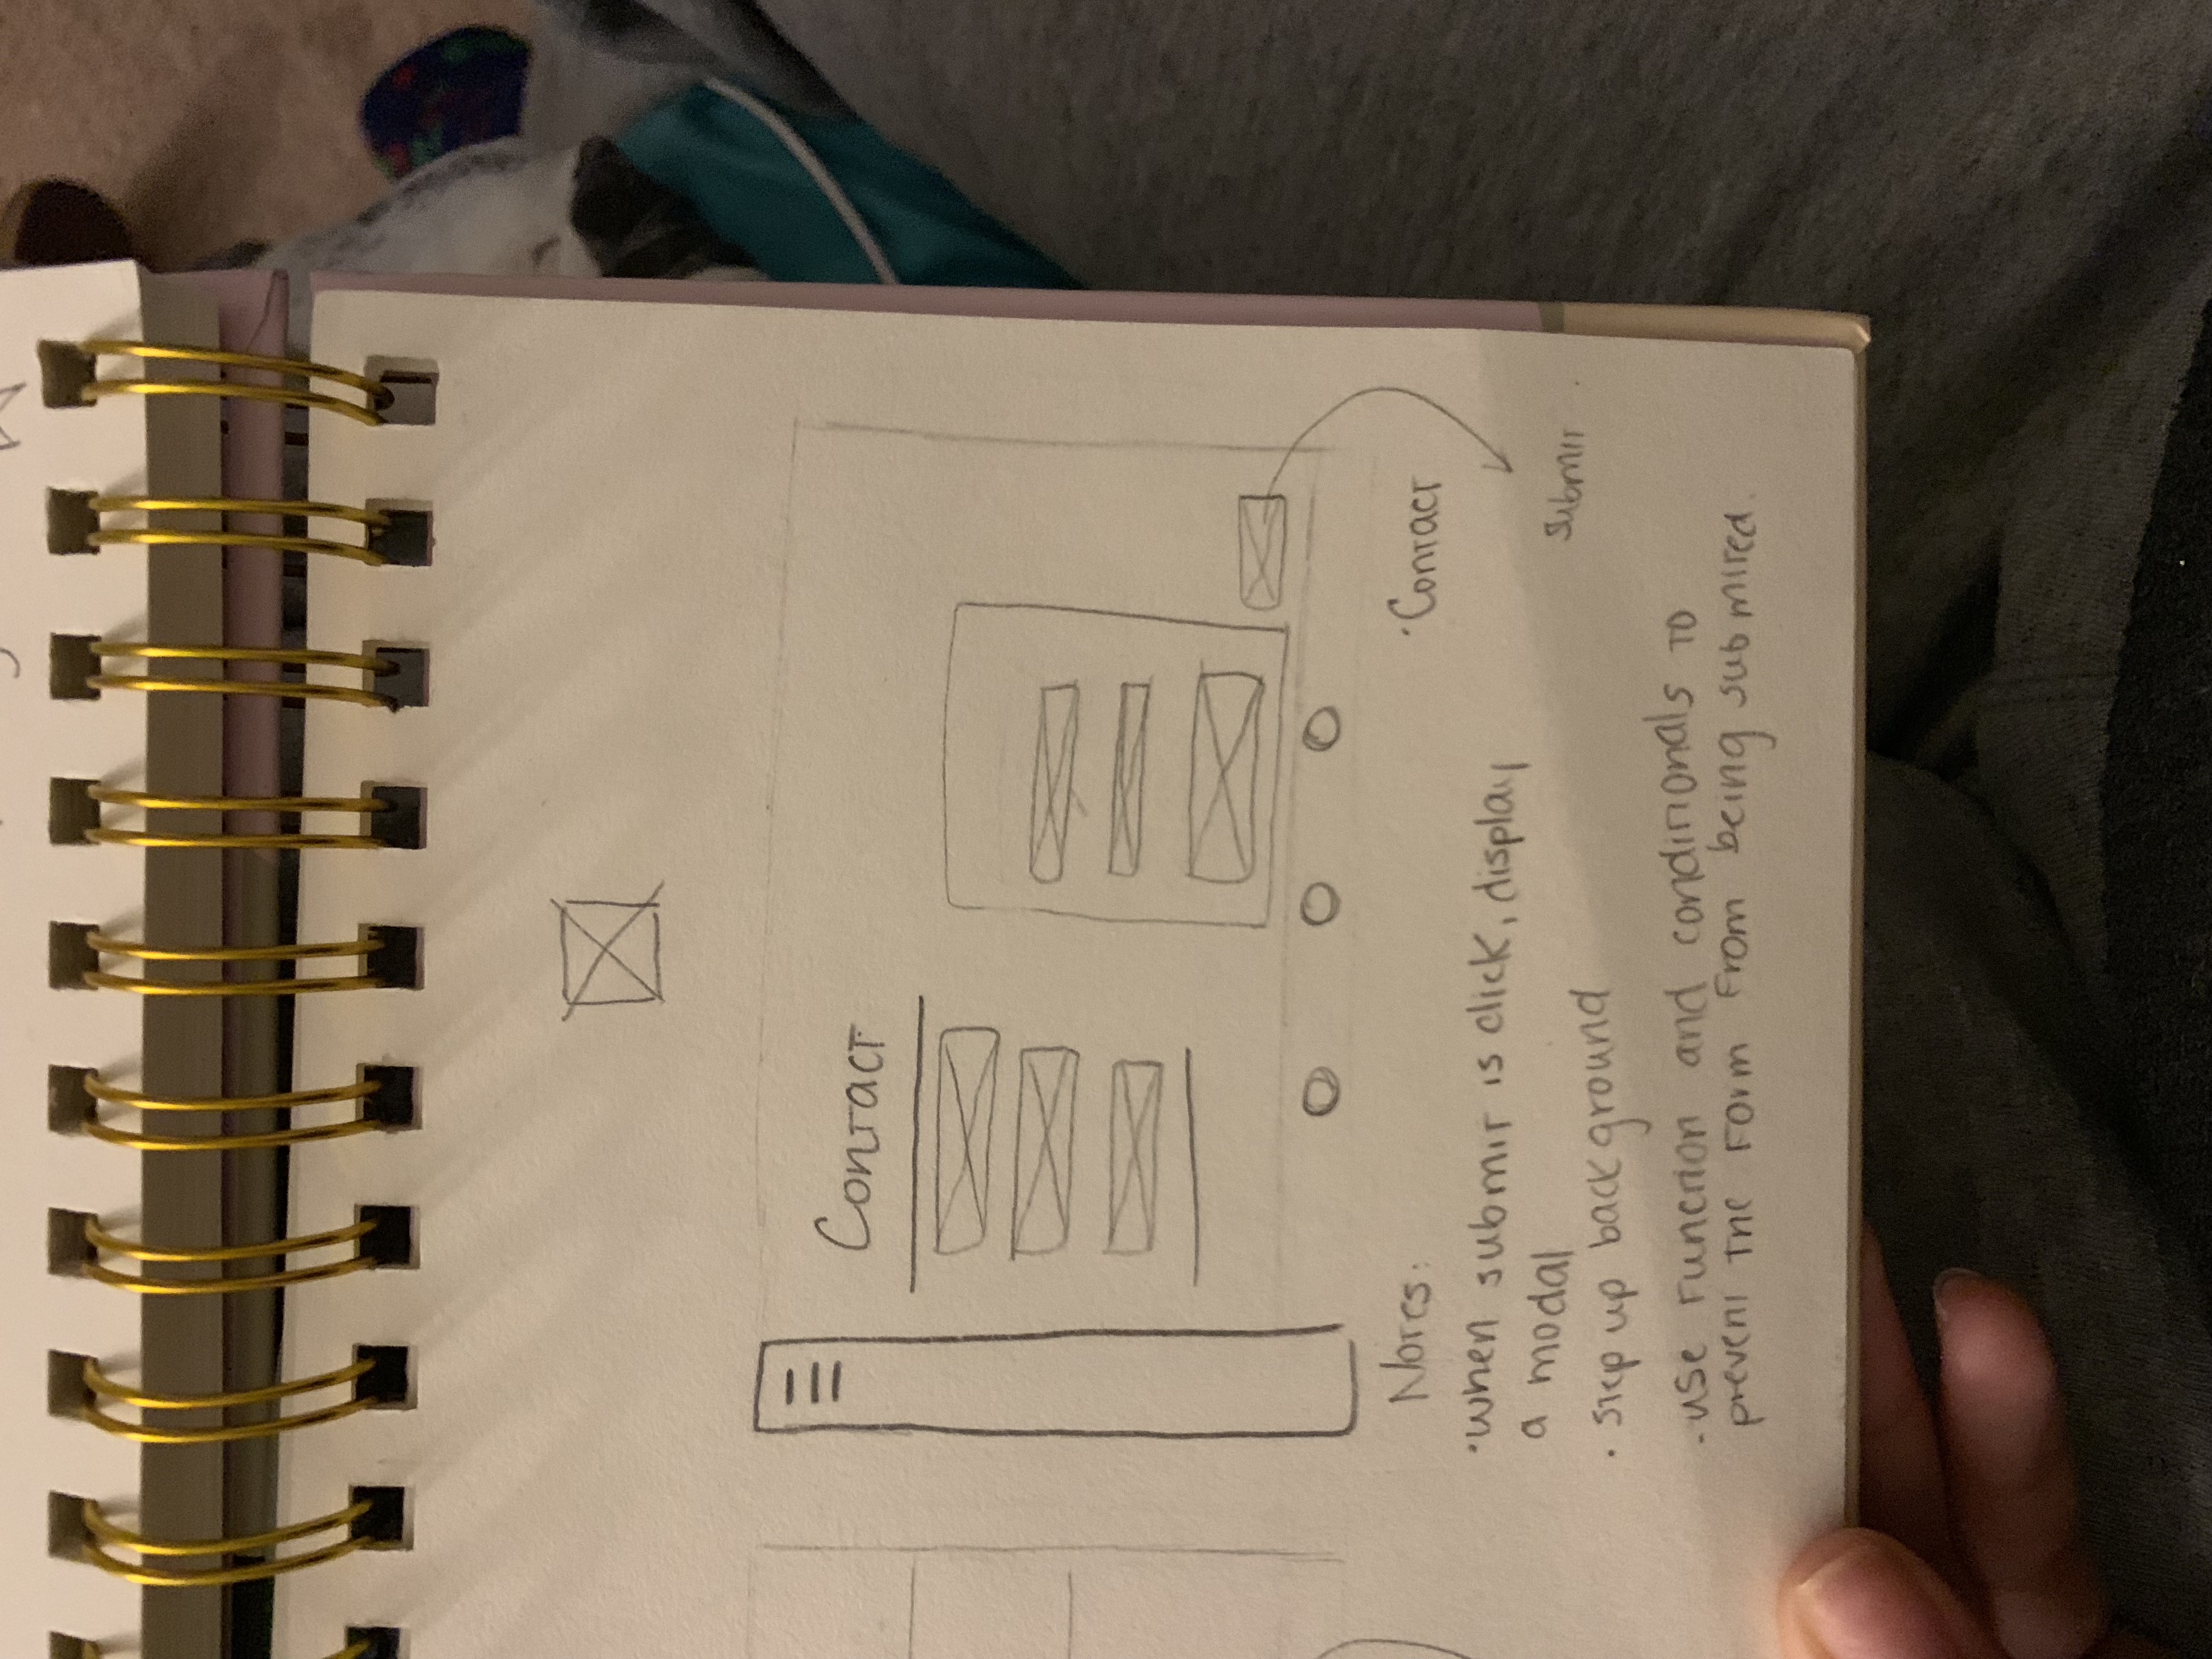 Contact
Notes:
· Contact
· when submit is click, display
a modal
submit
· step up background
· use function and conditionals to
prevent the form from being submited.